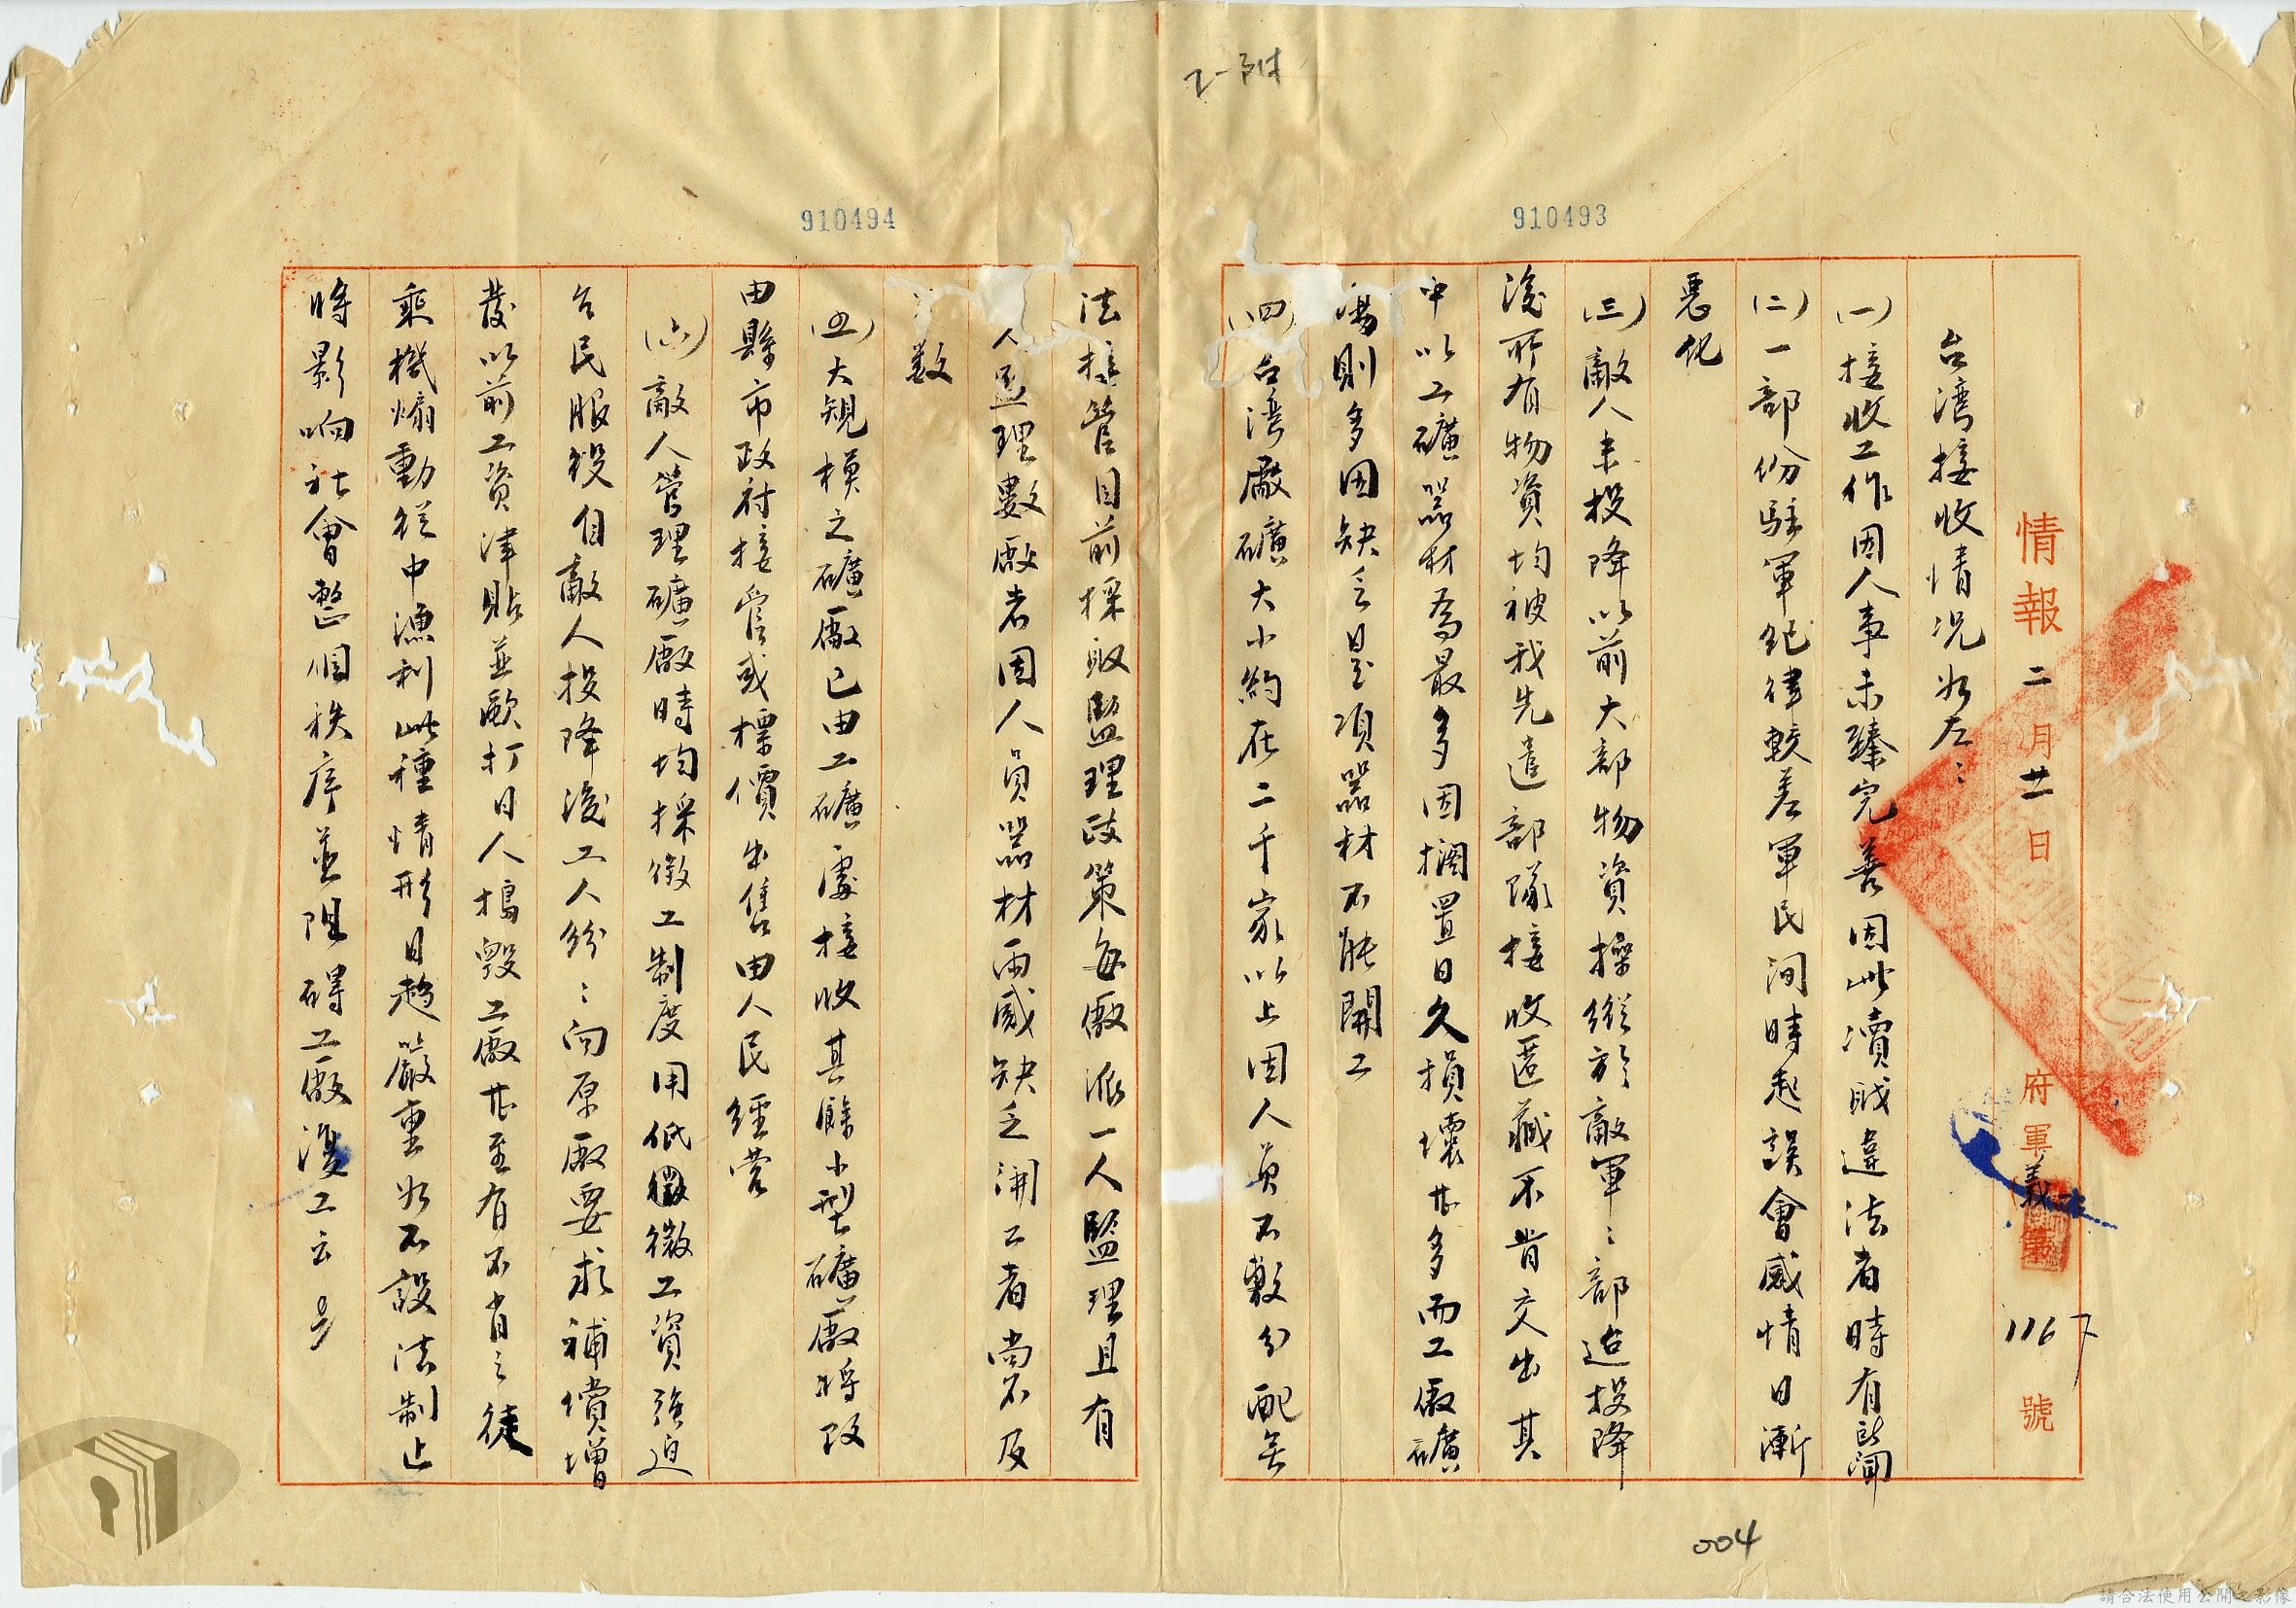 2-附
910493
910494
情報 二月廿一日 府軍義第1167號
台湾接收情况如左：
(一)接收工作因人事未臻完善因此瀆職違法者時有所聞
(二)一部份駐軍紀律較差軍民间時起誤會感情日漸
惡化
(三)敵人未投降以前大部物資操縱於敵軍〻部迨投降
後所有物資均被我先遣部隊接收匿藏不肯交出其
中以工礦器材為最多因擱置日久損壞甚多而工廠礦
場則多因缺乏是項器材不能開工
(四)台湾廠礦大小約在二千家以上因人員不敷分配無
法接管目前採取監理政策每廠派一人監理且有
人監理數廠者因人員器材両感缺乏開工者尚不及
数
(五)大規模之礦廠已由工礦處接收其餘小型礦廠將改
由縣市政府接管或標價出售由人民經营
(六)敵人管理礦廠時均採徵工制度用低微工資强迫
台民服役自敵人投降後工人紛〻向原廠要求補償增
發以前工資津貼並毆打日人搗毀工廠甚至有不肖之徒
乘機煽動從中漁利此種情形日趋嚴重如不設法制止
將影响社會整個秩序並阻碍工廠復工云云
004
請合法使用公開之影像